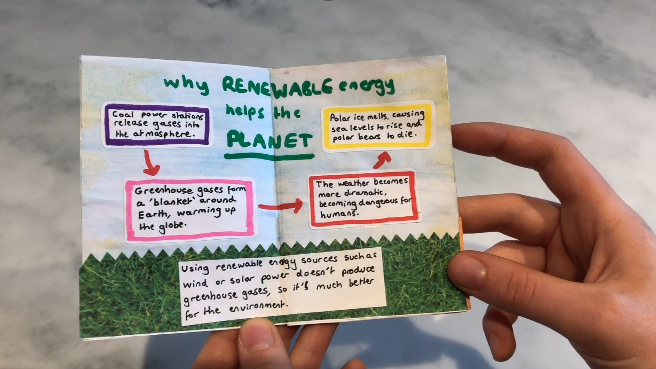 why RENEWABLE energy
helps the
PLANET
Coal power stations
release gases into
the atmosphere.
Greenhouse gases form
a 'blanket' around
Earth, warming up
the globe.
The weather becomes
more dramatic,
becoming dangeous for
humans.
Polar ice melts, causing
sea levels to rise and
polar bears to die.
Using renewable energy sources such as
wind or solar power doesn't produce
greenhouse gases, so it's much better
for the environment.